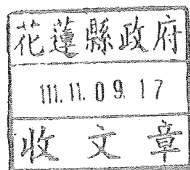 花蓮縣政府
111.11.09.17
收文章